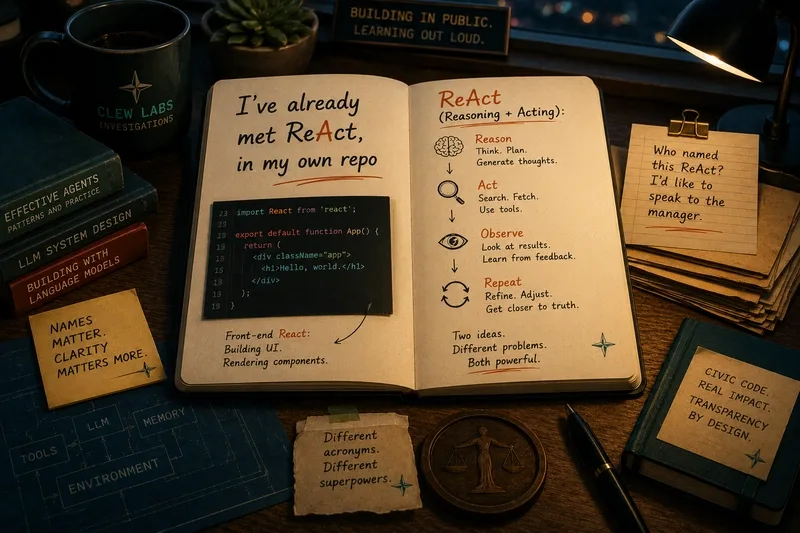 BUILDING IN PUBLIC.
LEARNING OUT LOUD.
CLEW LABS
INVESTIGATIONS
EFFECTIVE AGENTS
PATTERNS AND PRACTICE
LLM SYSTEM DESIGN
BUILDING WITH
LANGUAGE MODELS
NAMES
MATTER.
CLARITY
MATTERS MORE.
TOOLS
LLM
MEMORY
ENVIRONMENT
I've already
met ReAct,
in my own repo
import React from 'react';
export default function App() {
return (
<div className="app">
<h1>Hello, world.</h1>
</div>
);
}
Front-end React:
Building UI.
Rendering components.
ReAct
(Reasoning + Acting):
Reason
Think. Plan.
Generate thoughts.
Act
Search. Fetch.
Use tools.
Observe
Look at results.
Learn from feedback.
Repeat
Refine. Adjust.
Get closer to truth.
Two ideas.
Different problems.
Both powerful.
Who named
this ReAct?
I'd like to
speak to the
manager.
Different
acronyms.
Different
superpowers.
CIVIC CODE.
REAL IMPACT.
TRANSPARENCY
BY DESIGN.